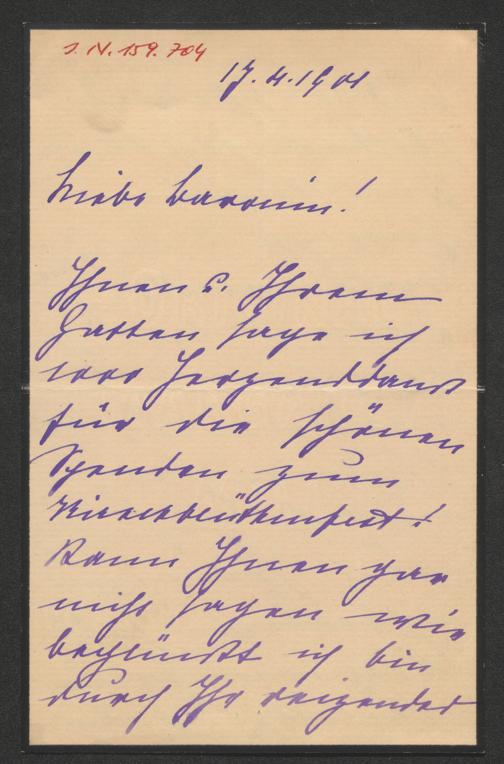 J. N. 159.704
17.4.1901
Liebe Baronin!
Ihnen u. Ihrem
Gatten sage ich
1000 Herzensdank
für die schönen
Spenden zum
Kirschblüthenfest!
Kann Ihnen gar
nicht sagen wie
beglückt ich bin
durch Ihr reizendes